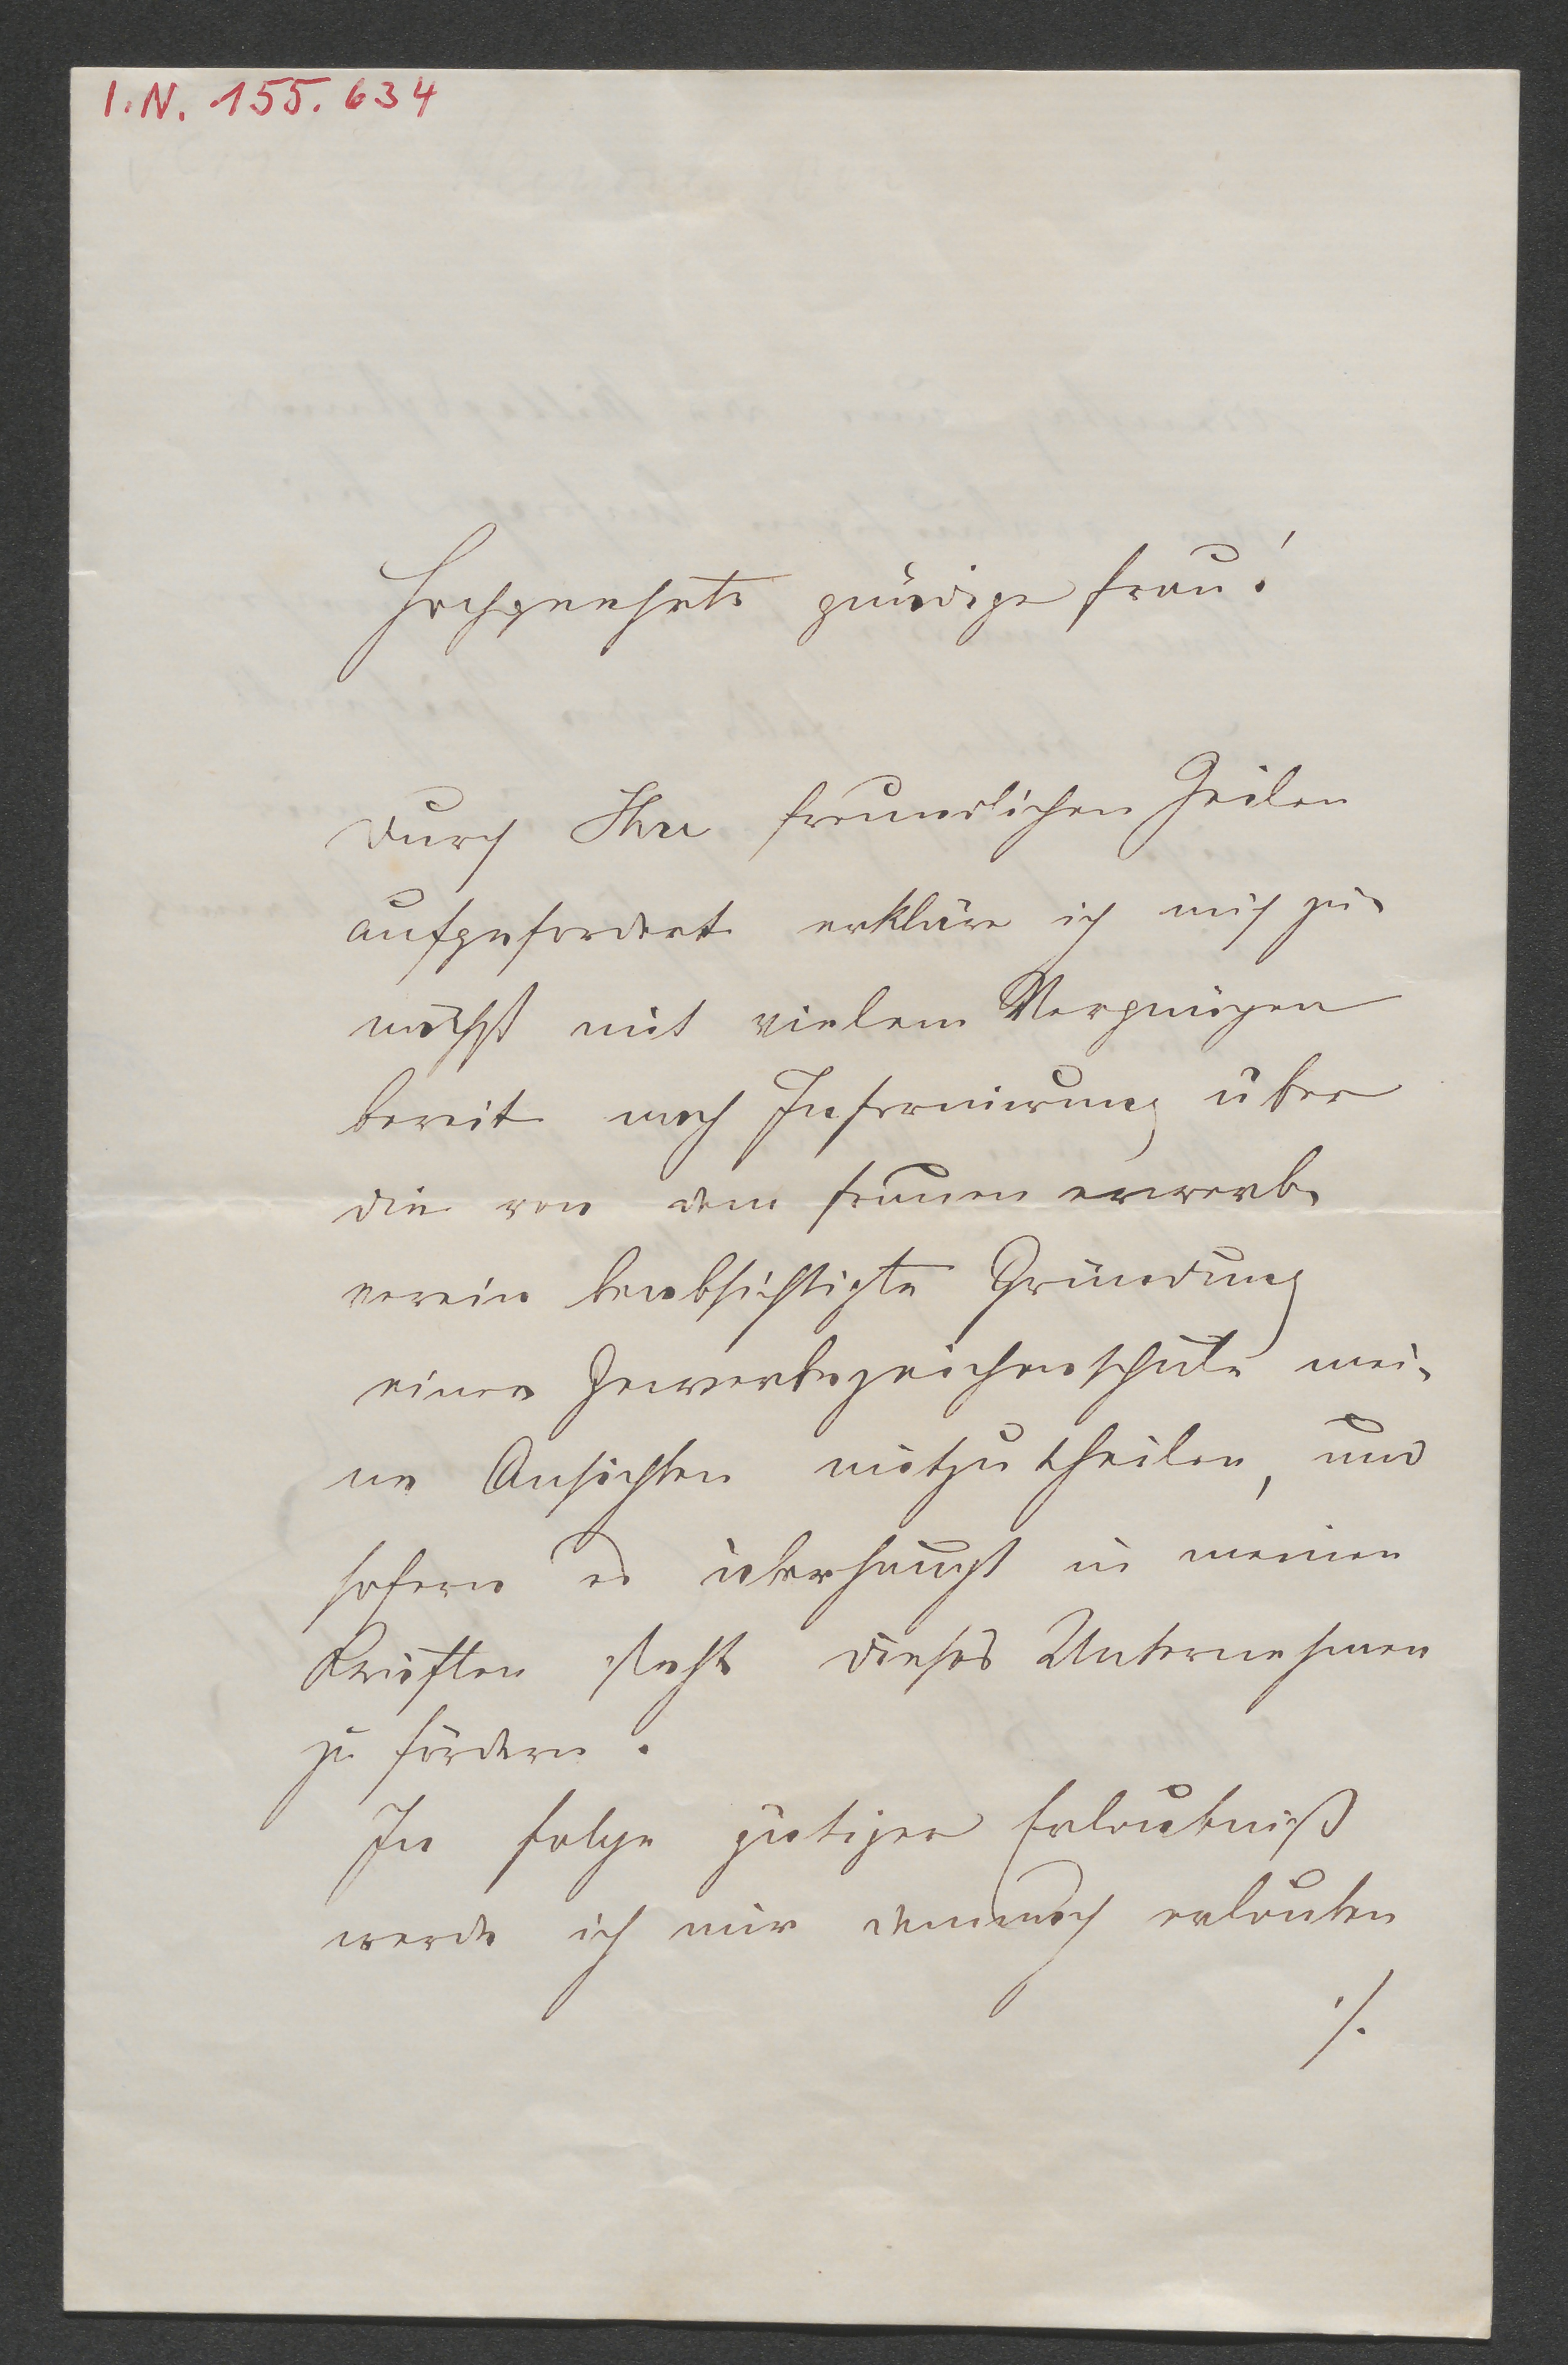 I.N. 155.634
Hochgeehrte gnädige Frau!
Durch Ihre freundlichen Zeilen
aufgefordert erkläre ich mich zu-
nächst mit vielem Vergnügen
bereit nach Informirung über
die von dem Frauenerwerb-
verein beabsichtigte Gründung
einer Gewerbezeichenschule mei-
ne Ansichten mitzutheilen, und
sofern es überhaupt in meinen
Kräften steht dieses Unternehmen
zu fördern.
In Folge gütiger Erlaubniß
werde ich mir demnach erlauben
./.